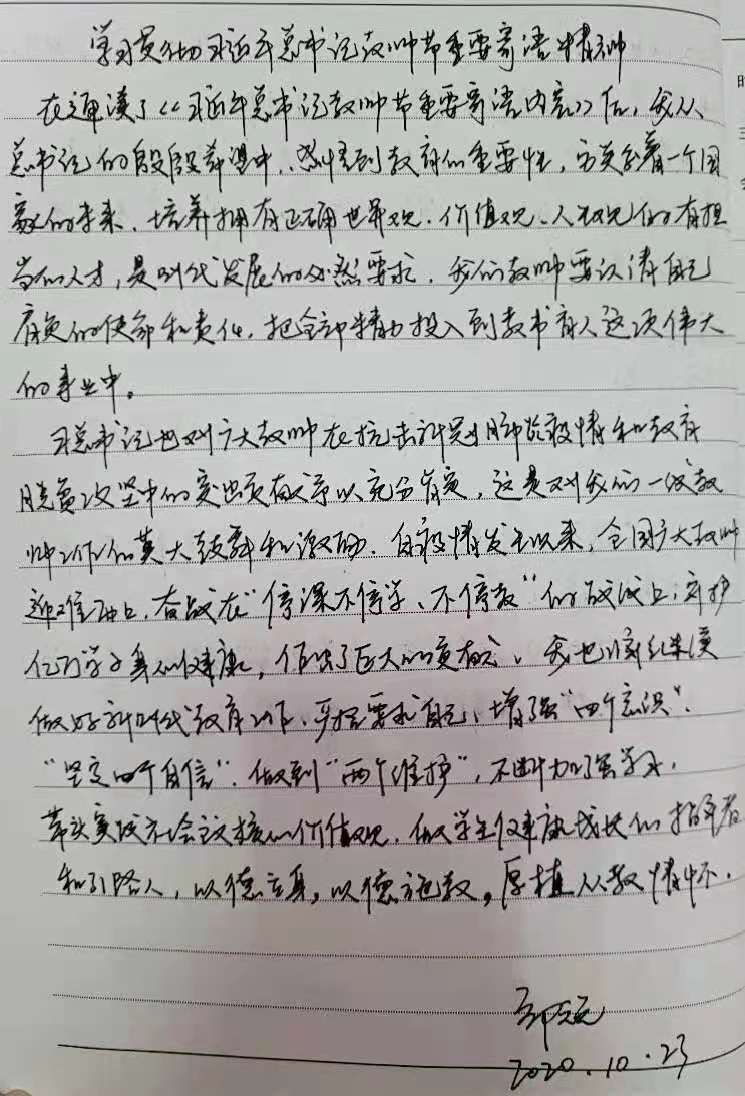 学习贯彻习近平总书记教师节重要寄语精神
在通读了《习近平总书记教师节重要寄语内容》后，我从
总书记的段段寄语中，感悟到教育的重要性，它关系着一个国
家的未来。培养拥有正确世界观、价值观、人生观的有担
当的人才，是时代发展的必然要求。我们教师要认清自己
肩负的使命和责任，把全部精力投入到教书育人这项伟大
的事业中。
习总书记也对广大教师在抗击新冠肺炎疫情和教育
脱贫攻坚中的突出贡献予以充分肯定，这是对我们一线教
师工作的莫大鼓舞和激励。自疫情发生以来，全国广大教师
迎难而上，奋战在“停课不停学、不停教”的战线上，守护
亿万学子身心健康，作出了巨大的贡献。我也应继续
做好新时代教育工作，严格要求自己，增强“四个意识”，
“坚定四个自信”，做到“两个维护”，不断加强学习，
带头实践社会主义核心价值观，做学生健康成长的指导者
和引路人，以德立身，以德施教，厚植从教情怀。
2020.10.23